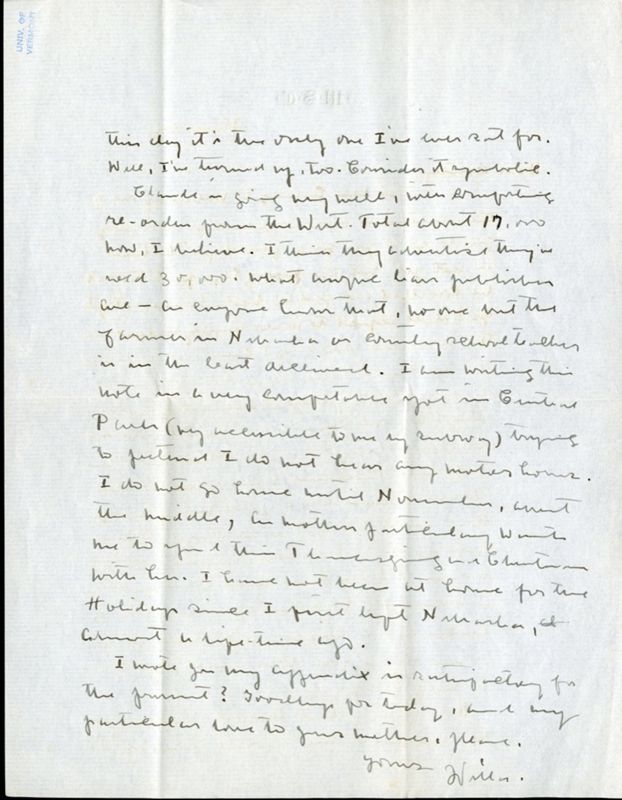 UNIV. OF
VERMONT
this day it's the only one I've ever sat for.
Well, I've turned up, too. Consider it symbolic.
Claude is going very well, with comforting
re-orders from the West. Total about 17,000
now, I believe. I think they advertise they've
sold 30,000. What unique liars publishers
are — as everyone knows that, no one but the
farmer in Nebraska or country school teacher
is in the least deceived. I am writing this
note in a very comfortable spot in Central
Park (very accessible to me by subway) trying
to pretend I do not hear any motor horns.
I do not go home until November, about
the middle, as mother particularly wants
me to spend this Thanksgiving and Christmas
with her. I have not been at home for the
Holidays since I first left Nebraska,
almost a life-time ago.
I wrote you my appendix is satisfactory for
the present? Goodbye for today, and my
particular love to your mother, please.
Yours
Willa.